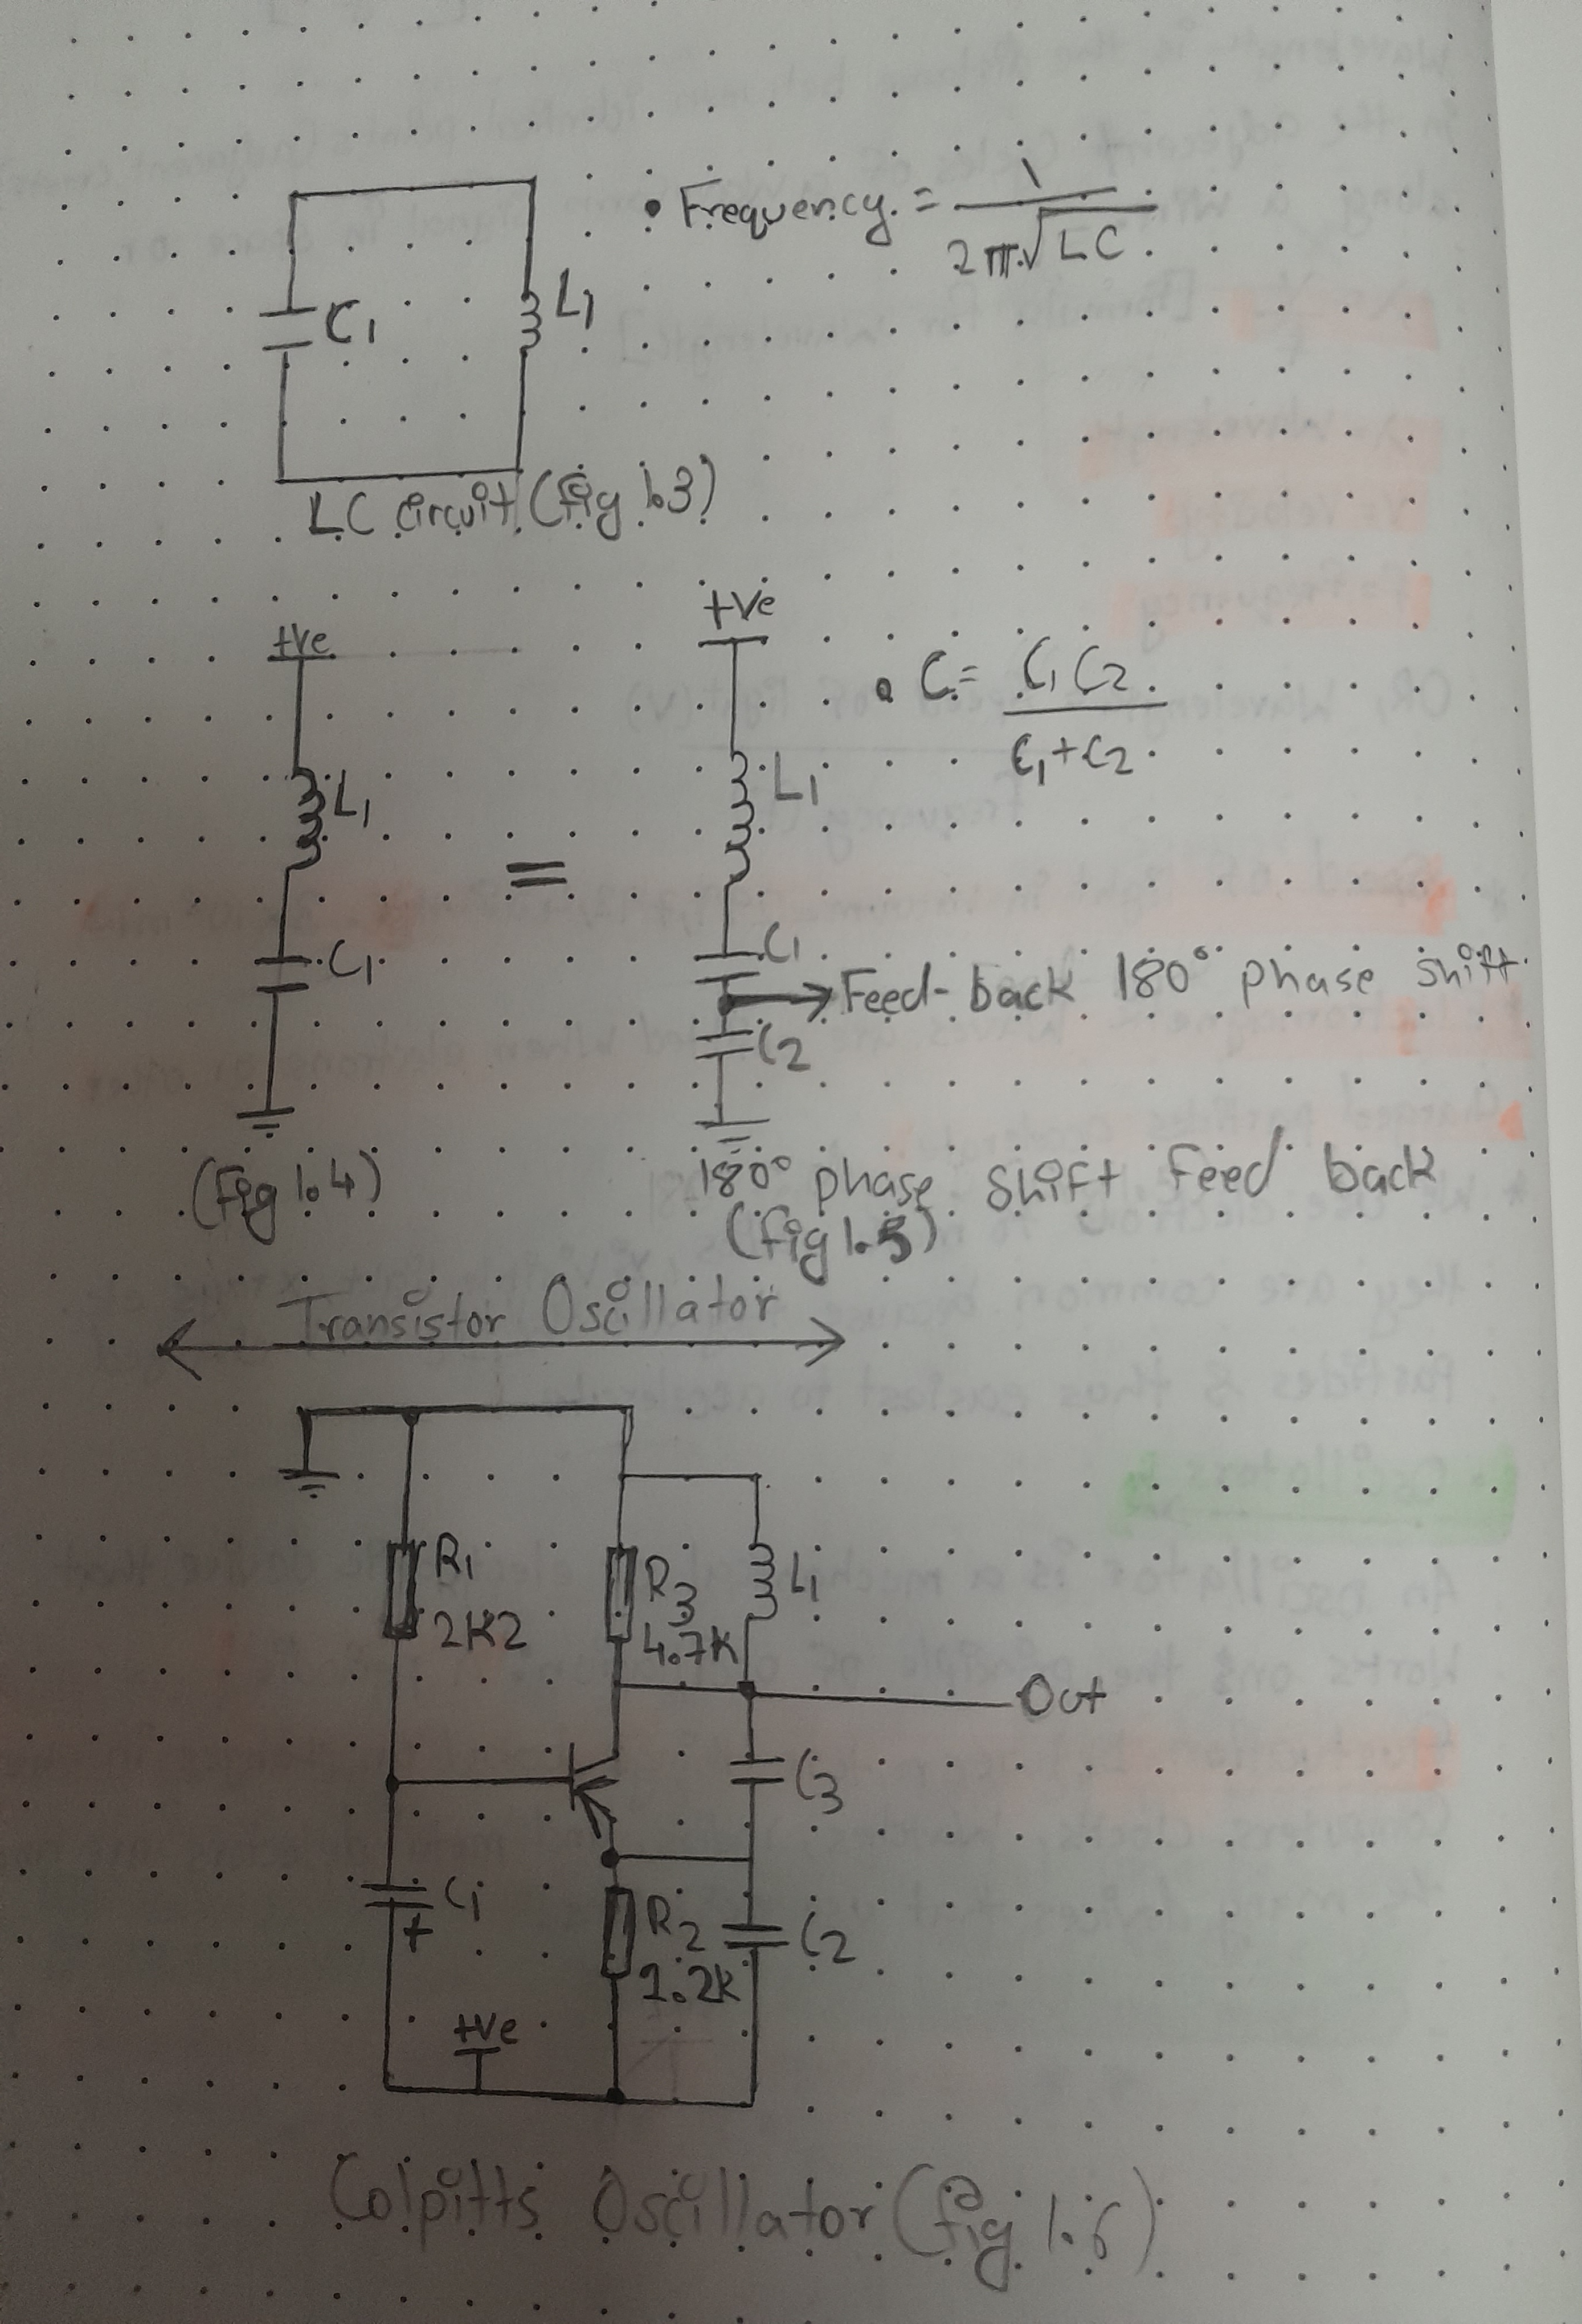 • Frequency = 1 / 2π√LC
C1
L1
LC circuit (fig 1.3)
+ve
+ve
• C = C1C2 / C1+C2
L1
L1
=
C1
C1
Feed-back 180° phase shift
C2
(fig 1.4)
180° phase shift feed back
(fig 1.5)
Transistor Oscillator
R1
2K2
R3
4.7K
L1
Out
C3
C1
+
R2
1.2K
C2
+ve
Colpitts Oscillator (fig 1.6)